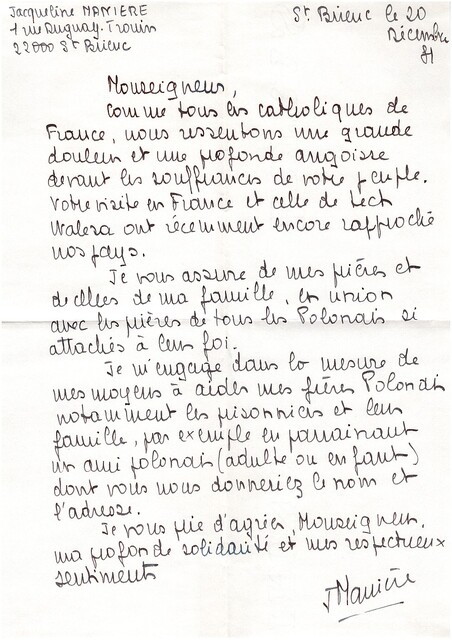 Jacqueline MANIÈRE
1 rue Duguay-Trouin
22000 St Brieuc
St Brieuc le 20
Décembre
81
Monseigneur,
Comme tous les catholiques de
France, nous ressentons une grande
douleur et une profonde angoisse
devant les souffrances de votre peuple.
Votre visite en France et celle de Lech
Walesa ont récemment encore rapproché
nos pays.
Je vous assure de mes prières et
de celles de ma famille, en union
avec les prières de tous les Polonais si
attachés à leur foi.
Je m'engage dans la mesure de
mes moyens à aider mes frères Polonais
notamment les prisonniers et leur
famille, par exemple en parrainant
un ami polonais (adulte ou enfant)
dont vous nous donneriez le nom et
l'adresse.
Je vous prie d'agréer, Monseigneur,
ma profonde solidarité et mes respectueux
sentiments
J Manière